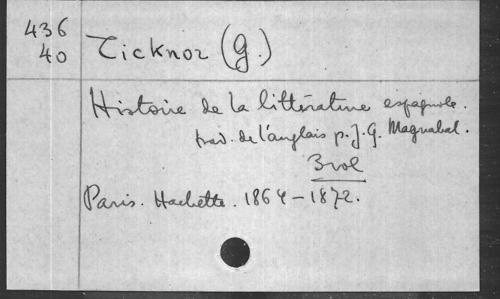 436
40
Ticknor (G.)
Histoire de la littérature espagnole.
trad. de l'anglais p. J. G. Magnabal.
3 vol
Paris. Hachette. 1864-1872.